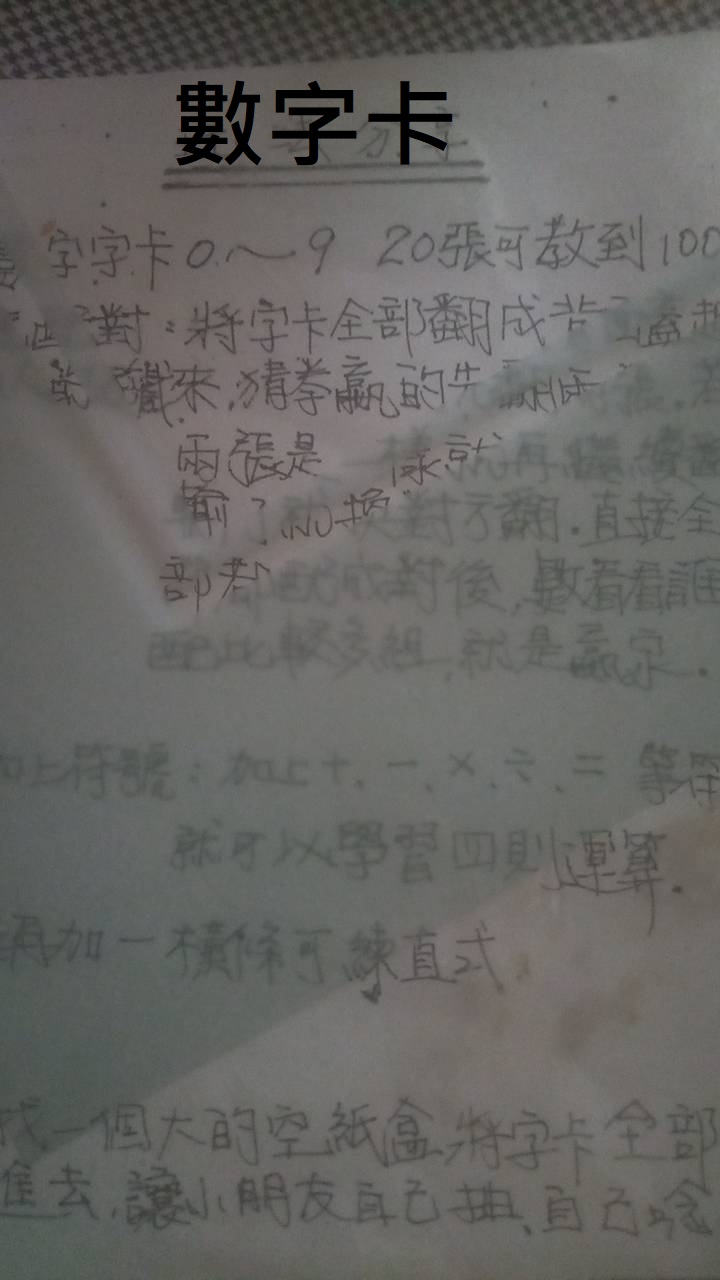 數字卡
字字卡0~9 20張可教到100
對:將字卡全部翻成背
來,猜拳贏的先翻兩張.
兩張是一樣就再繼續翻
輸了就換對方翻.直接全
部都配成對後,數看看誰
配比較多組,就是贏家.
加上符號:加上+、-、×、÷、= 等
就可以學習四則運算.
再加一橫條可練直式
找一個大的空紙盒,將字卡全部
進去,讓小朋友自己抽、自己唸